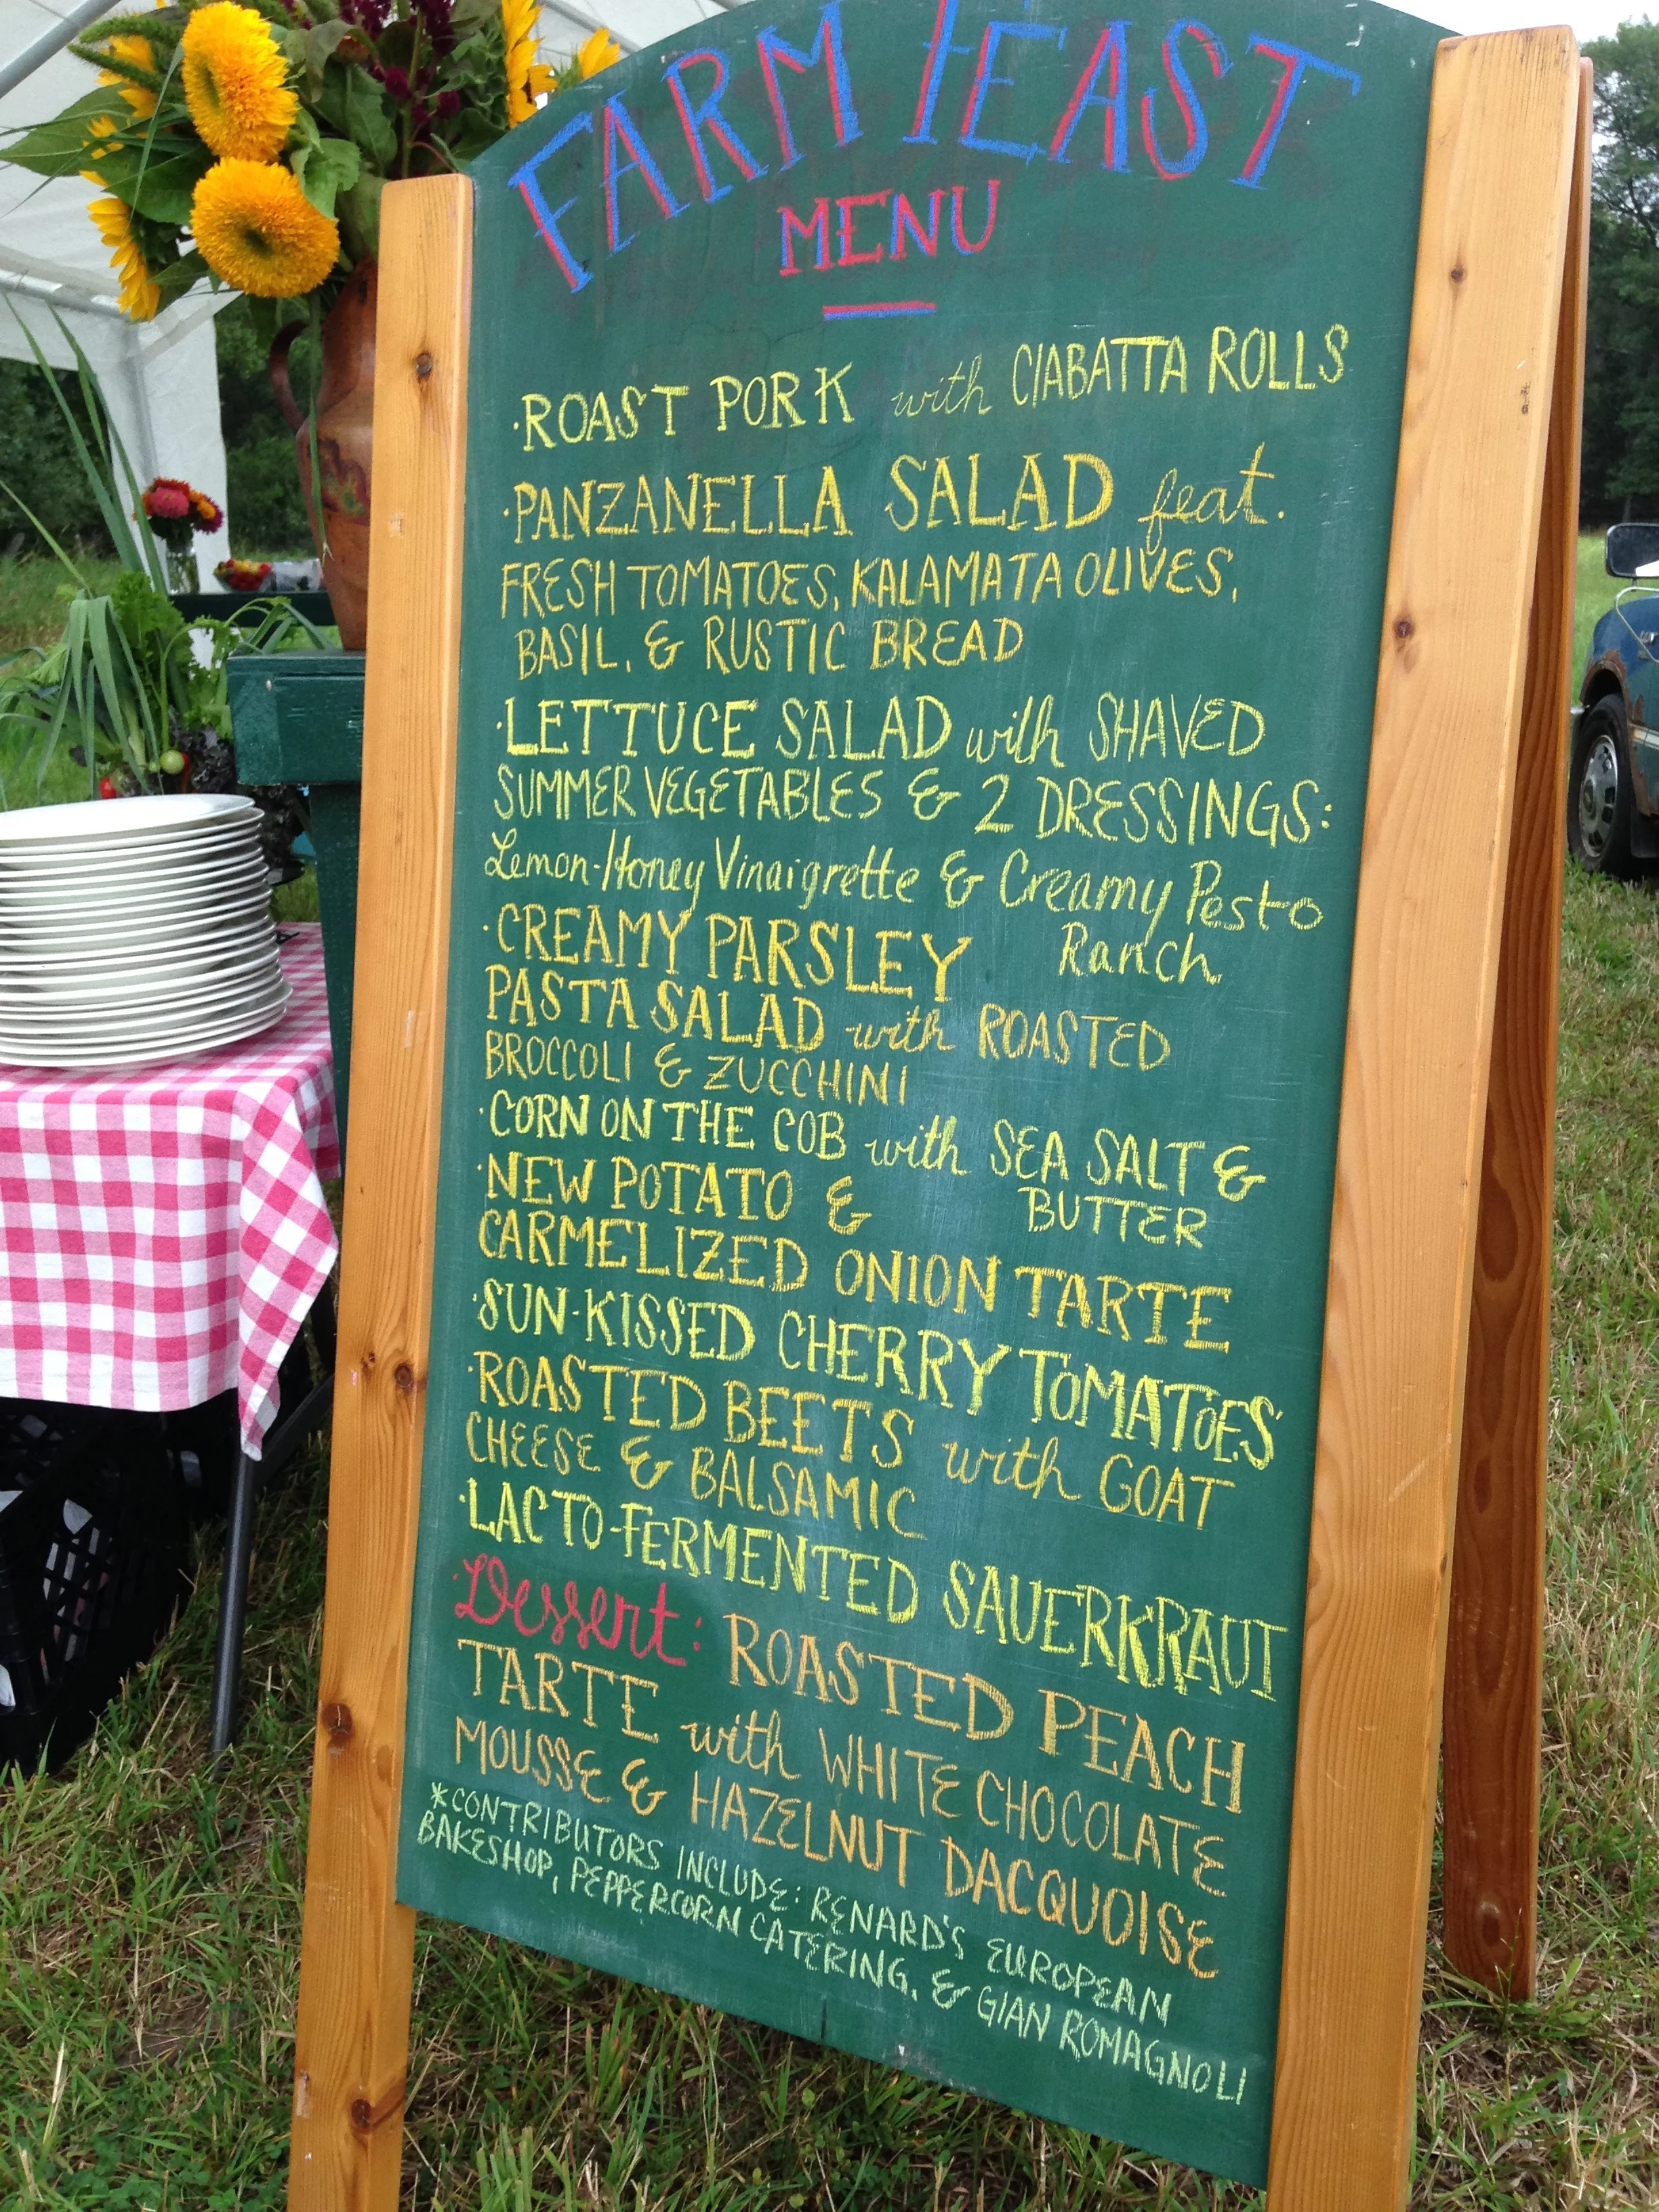 FARM FEAST
MENU
·ROAST PORK with CIABATTA ROLLS
·PANZANELLA SALAD feat.
FRESH TOMATOES, KALAMATA OLIVES,
BASIL, & RUSTIC BREAD
·LETTUCE SALAD with SHAVED
SUMMER VEGETABLES & 2 DRESSINGS:
Lemon-Honey Vinaigrette & Creamy Pesto
Ranch
·CREAMY PARSLEY
PASTA SALAD with ROASTED
BROCCOLI & ZUCCHINI
·CORN ON THE COB with SEA SALT &
BUTTER
·NEW POTATO &
CARMELIZED ONION TARTE
·SUN-KISSED CHERRY TOMATOES
·ROASTED BEETS with GOAT
CHEESE & BALSAMIC
·LACTO-FERMENTED SAUERKRAUT
·Dessert: ROASTED PEACH
TARTE with WHITE CHOCOLATE
MOUSSE & HAZELNUT DACQUOISE
*CONTRIBUTORS INCLUDE: RENARD'S EUROPEAN
BAKESHOP, PEPPERCORN CATERING, & GIAN ROMAGNOLI